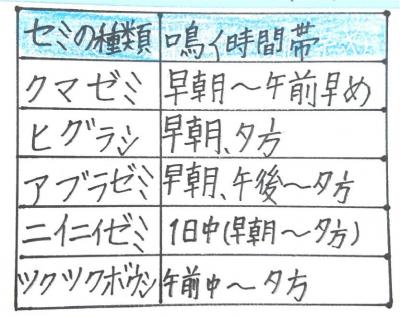 セミの種類 鳴く時間帯
クマゼミ 早朝～午前早め
ヒグラシ 早朝、夕方
アブラゼミ 早朝、午後～夕方
ニイニイゼミ 1日中(早朝～夕方)
ツクツクボウシ 午前中～夕方